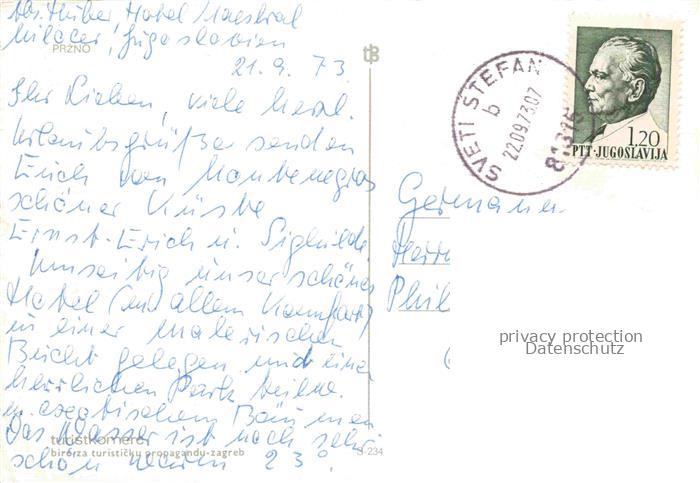 Abs. Huber, Hotel Maestral
Milŏcer, Jugoslavien
PRŽNO
tb
21. 9. 73.
Ihr Lieben, viele herzl.
Urlaubsgrüße senden
Euch von Montenegros
schöner Küste
Ernst-Erich u. Sighilde.
Umseitig unser schönes
Hotel (mit allem Komfort)
in einer malerischen
Bucht gelegen und einem
herrlichen Park teilw.
m. exotischem Bäumen
Das Wasser ist noch sehr
schön warm 23°.
turistkomerc
biro za turističku propagandu-zagreb
S-234
SVETI STEFAN
b
22.09.73.07
81315
1.20
PTT·JUGOSLAVIJA
Germania
Herrn
Phil
privacy protection
Datenschutz